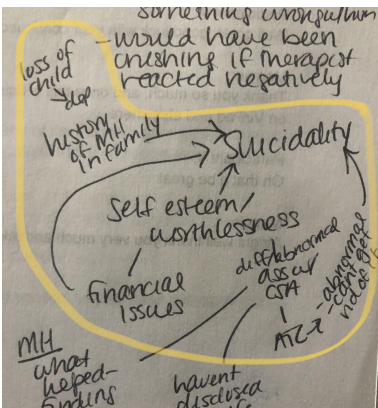 something wrong w/ him
- would have been
crushing if therapist
reacted negatively
loss of
child
→ dep
history
of MH
in family
Suicidality
Self esteem/
worthlessness
financial
issues
diff/abnormal
CSA
- abnormal
- can't get
rid of it
MH
what
helped-
finding
havent
disclosed
Oh that'd be great